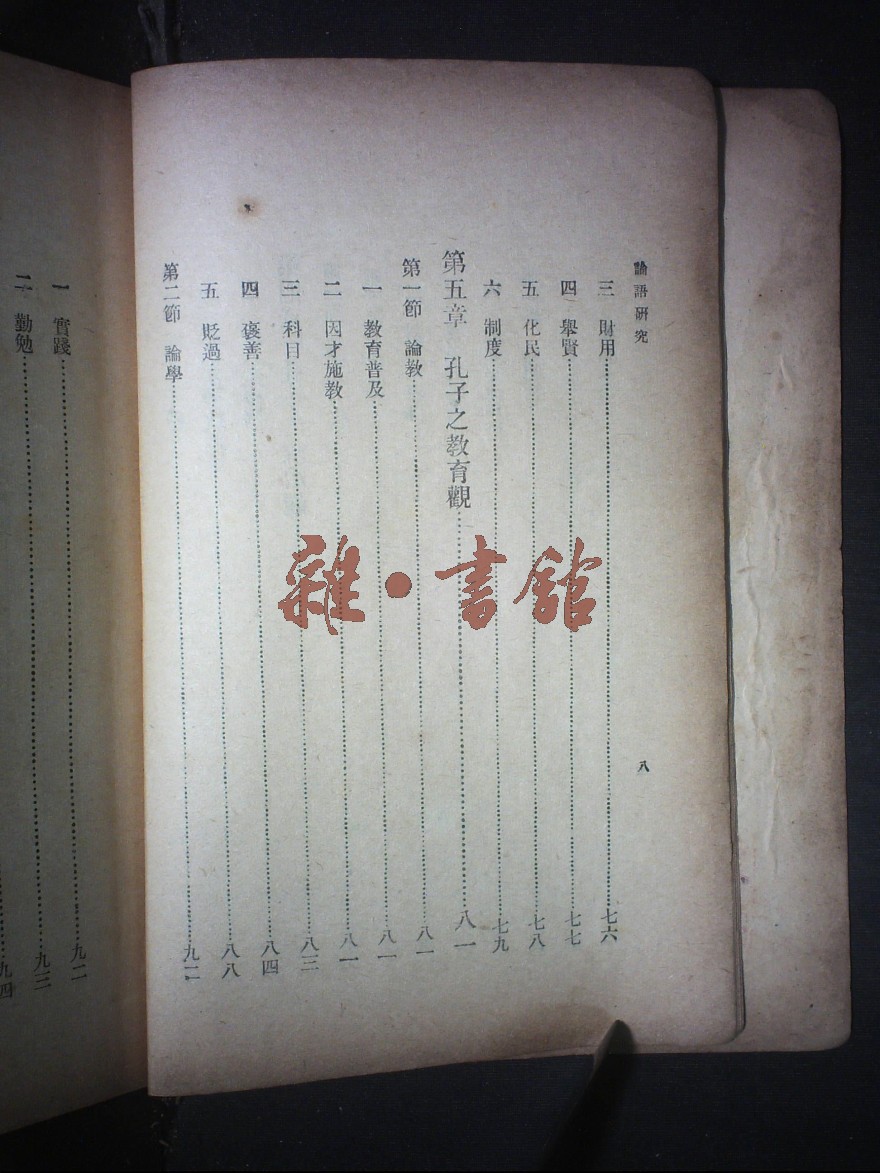 論語研究
八
三 財用 七六
四 舉賢 七七
五 化民 七八
六 制度 七九
第五章 孔子之教育觀 八一
第一節 論教 八一
一 教育普及 八一
二 因才施教 八一
三 科目 八三
四 褒善 八四
五 貶過 八八
第二節 論學 九二
一 實踐 九二
二 勤勉 九三
九四
雜·書館